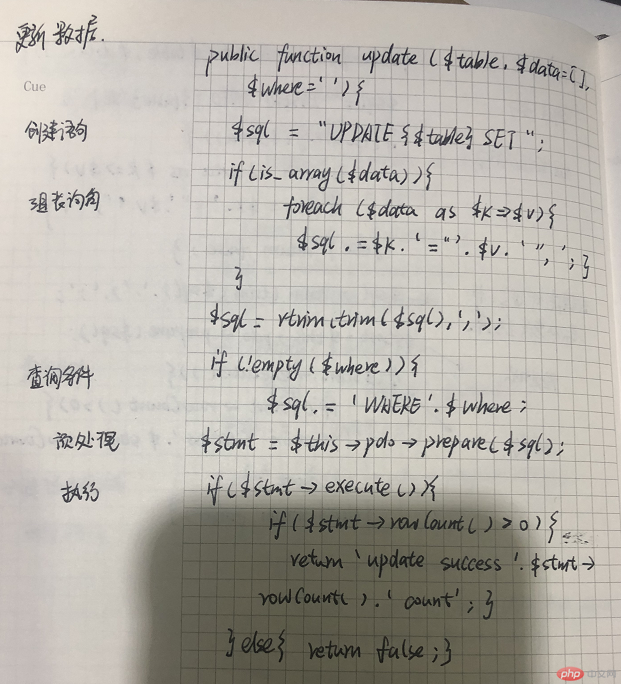 更新数据.
public function update ($table, $data=[],
Cue
$where=' '){
创建语句
$sql = "UPDATE {$table} SET ";
if (is_array($data)){
组装词句
foreach ($data as $k=>$v){
$sql .=$k.'="'.$v.'",'; }
}
$sql = rtrim(trim($sql),',');
if (!empty($where)){
查询条件
$sql .= 'WHERE'.$where;
预处理
$stmt = $this->pdo->prepare($sql);
执行
if ($stmt->execute()){
if ($stmt->rowCount()>0){
return 'update success'.$stmt->
rowCount().'count'; }
}else{ return false;}
php